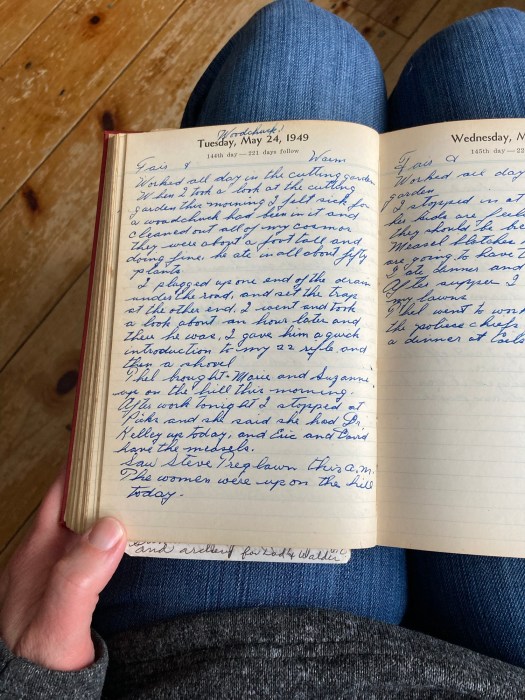 Woodchuck!
Tuesday, May 24, 1949
144th day — 221 days follow
Fair & Warm
Worked all day in the cutting garden
When I took a look at the cutting
garden this morning I felt sick, for
a woodchuck had been in it and
cleaned out all of my cosmos
they were about a foot tall and
doing fine. he ate in all about fifty
plants.
I plugged up one end of the drain
under the road, and set the trap
at the other end, I went and took
a look about an hour later and
there he was, I gave him a quick
introduction to my 22 rifle, and
then a shovel
Phel brought Marie and Suzanne
up on the hill this morning.
After work tonight I stopped at
and she said she had Dr.
Kelley up today, and Eric and David
have the measels.
Saw Steve this a.m.
The women were up on the hill
today.
and for Dad & Walder
Wednesday, M
145th day — 22
Fair &
Worked all day
garden
I stopped in at
her kids are
they should be
Measel blotches
are going to have t
I ate dinner and
After supper I
my lawns
Phel went to work
the polices chiefs
a dinner at